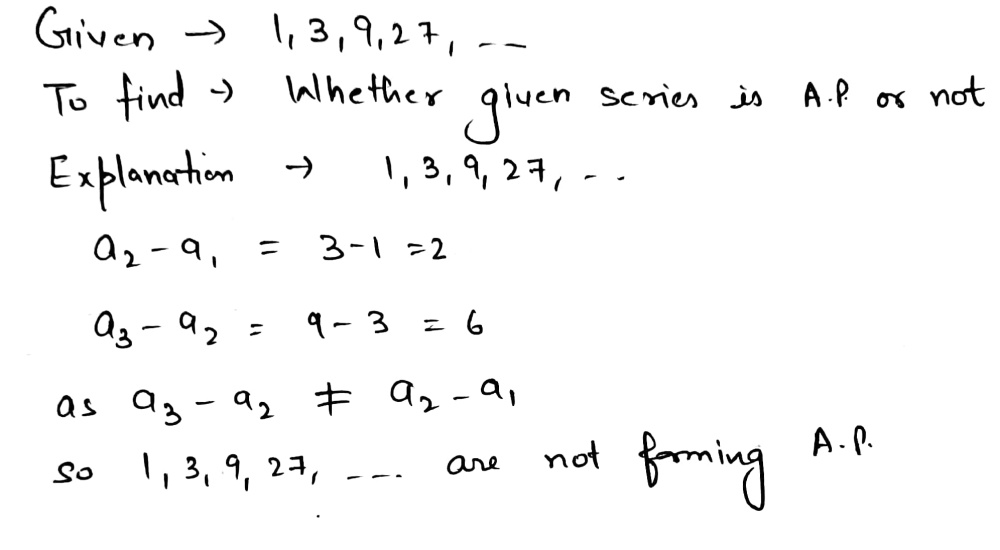 Given → 1, 3, 9, 27, ---
To find → Whether given series is A.P. or not
Explanation → 1, 3, 9, 27, ---
a₂ - a₁ = 3 - 1 = 2
a₃ - a₂ = 9 - 3 = 6
as a₃ - a₂ ≠ a₂ - a₁
so 1, 3, 9, 27, ---- are not forming A.P.